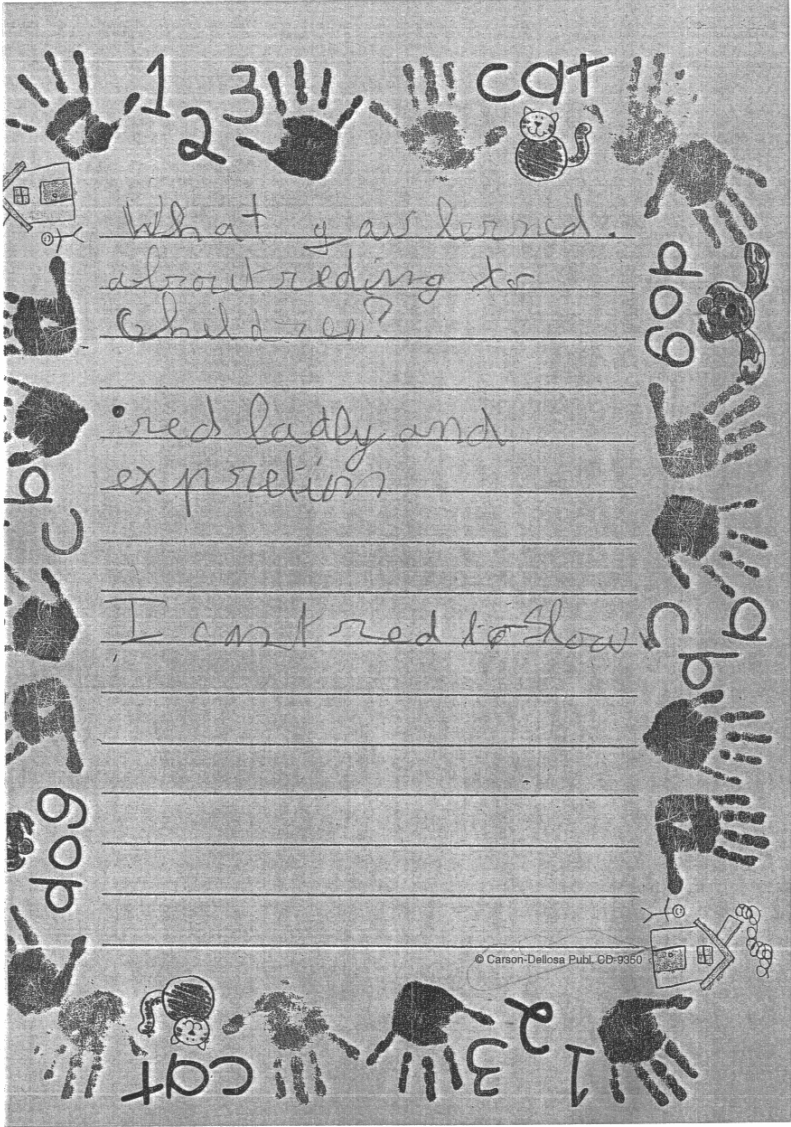 1 2 3 cat
What yau lernid.
about reding to
Children?
dog
•red ladly and
expretion
a b c
I cant red to slow
a b c
dog
© Carson-Dellosa Publ. CD-9350
cat 3 2 1